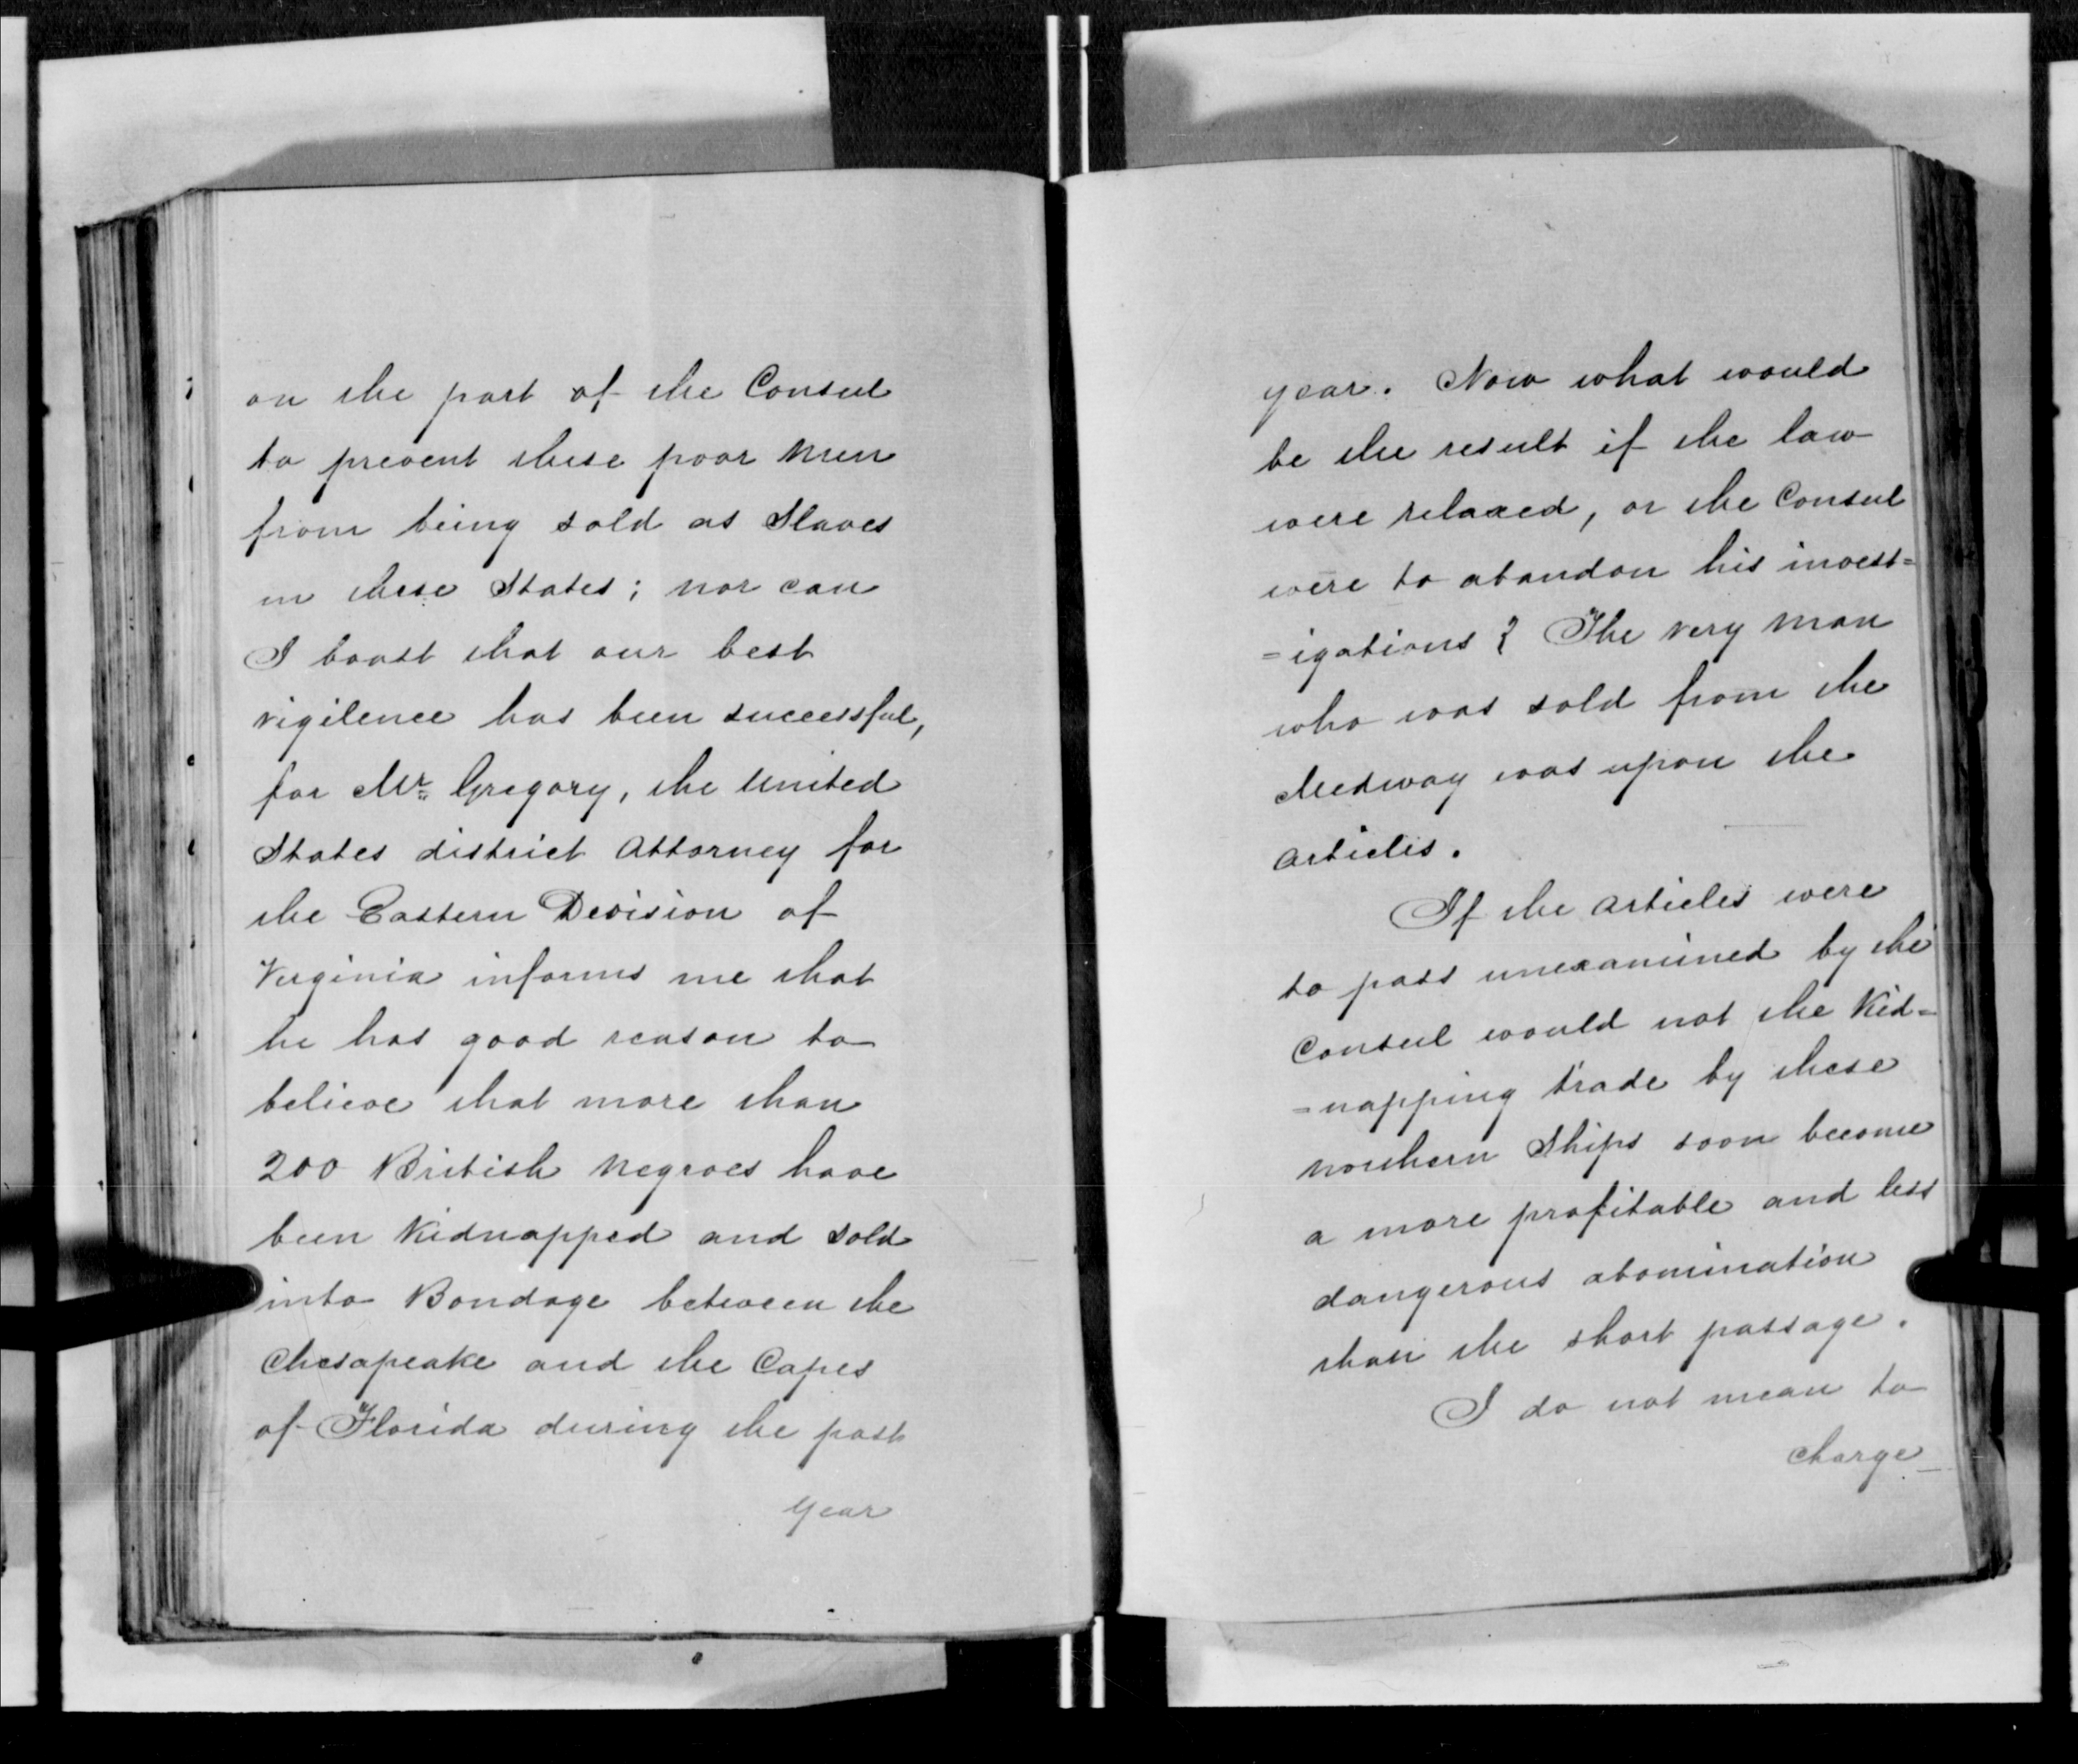 on the part of the Consul
to prevent these poor men
from being sold as Slaves
in these States; nor can
I boast that our best
vigilence has been successful,
for Mr. Gregory, the United
States district Attorney for
the Eastern Division of
Virginia informs me that
he has good reason to
believe that more than
200 British Negroes have
been Kidnapped and sold
into Bondage between the
Chesapeake and the Capes
of Florida during the past
year
year. Now what would
be the result if the law
were relaxed, or the Consul
were to abandon his invest=
=igations? The very man
who was sold from the
Medway was upon the
Articles.
If the Articles were
to pass unexamined by the
Consul would not the Kid=
=napping trade by these
Northern Ships soon become
a more profitable and less
dangerous abomination
than the short passage.
I do not mean to
charge